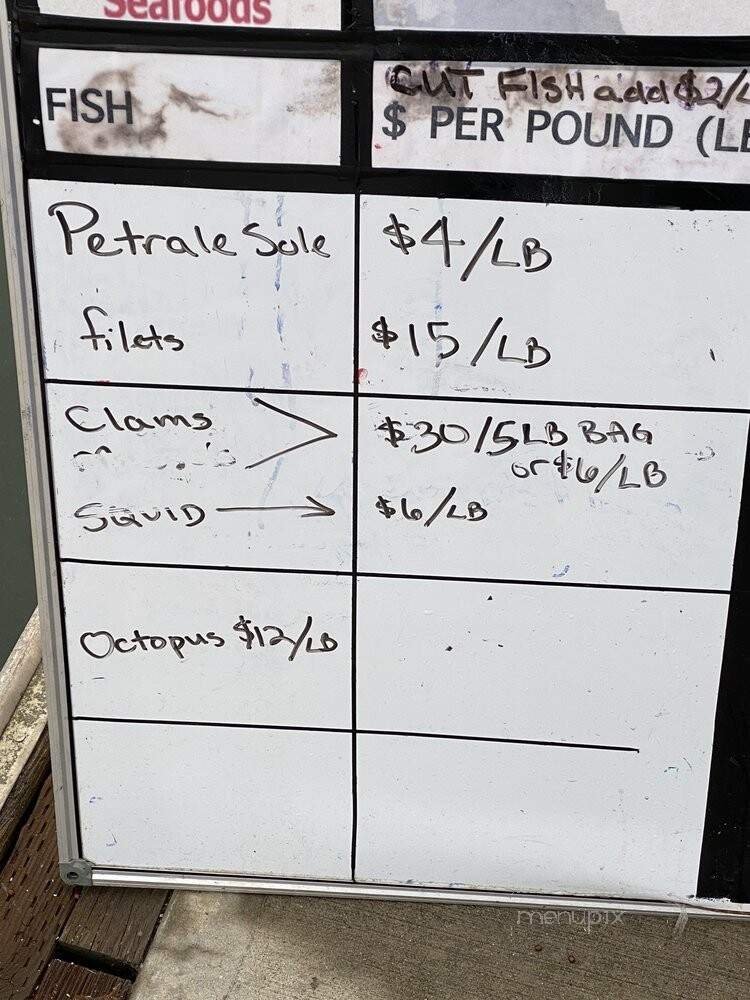 Seafoods
CUT FISH add $2/L
FISH
$ PER POUND (LB
Petrale Sole $4/LB
filets $15/LB
Clams $30/5LB BAG
or $6/LB
SQUID $6/LB
Octopus $12/LB
menupix